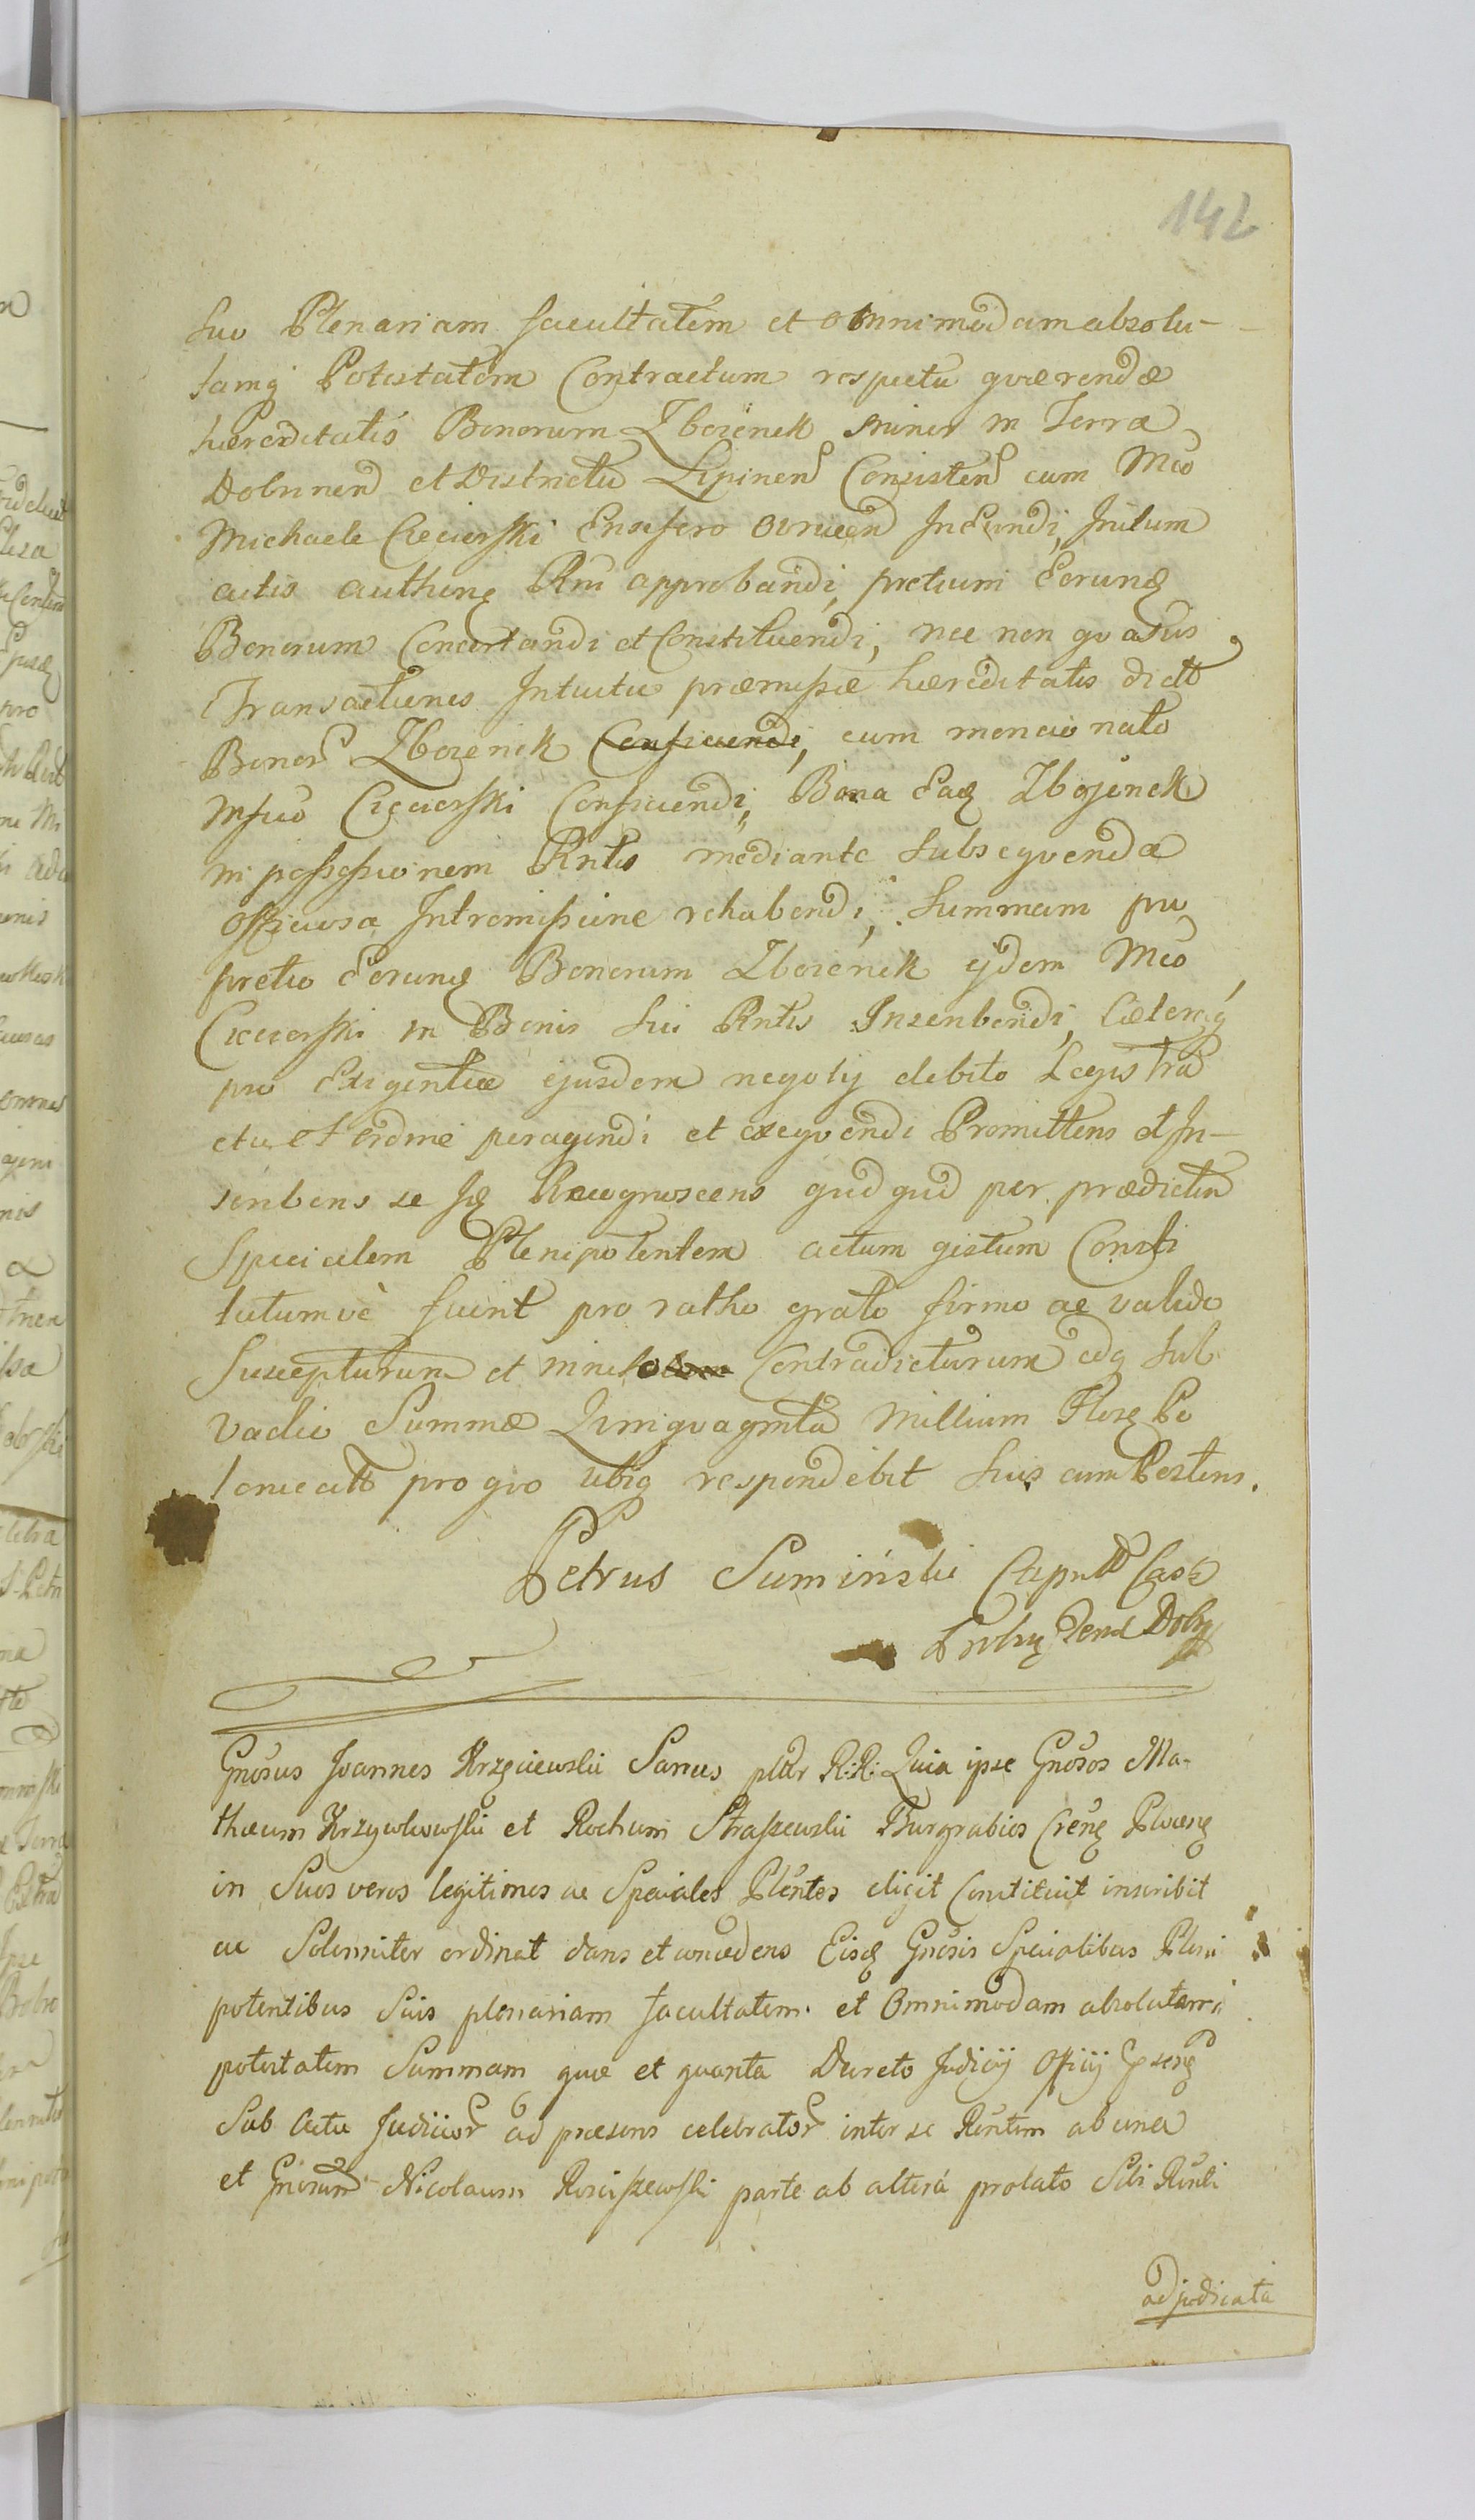 142
suo Plenariam facultatem et omnimodam absolu-
tamq Potestatem Contractum respectu qværendæ
hæreditatis Bonorum Zbozenek minor in Terra
Dobrinen et Districtu Lipinen Consisten cum Mco
Michaele Cieciorski Ensifero InEundi,
actis approbandi, pretium Eorunq
Bonorum Concertandi et Constituendi, nec non qvasvis
Transactiones Intuitu præmissæ hæreditatis dictt
Bonor Zbozenek Conficiendi, cum mencionato
Mfico Cięciorski Conficiendi, Bona Eaq Zbojenek
in possessionem Rntis mediante subseqvenda
officiosa Intromissione rehabendi, Summam pro
pretio Eorunq Bonorum Zbozenek ejdem Mco
Cieciorski in Bonis sui Rntis Inscribendi, Cæteraq
pro Exigentia ejusdem negotij debito Legis
ctu et ordine peragendi et exeqvendi Promittens et In-
scribens se Recognoscens qudqud per prædictum
Specialem Plenipotentem actum gestum Consti
tutumvè fuerit pro ratho grato firmo ac valido
Suscepturum et in nullo Contradicturum idq sub
vadio Summæ Qvinqvaginta Millium Flor Po
lonicatt pro qvo ubiq respondebit suis cum Postens.
Petrus Sumiński Capntt Cas
Gnosus Joannes Krzęciewski Sanus pltr R:R: Quia ipse Gnosos Ma-
thæum Krzywkowski et Rochum Straszewski Burgrabios
in Suos veros legitimos ac Speciales Plentes eligit Constituit inscribit
ac Solemniter ordinat dans et concedens Eisq Gnosis Specialibus Pleni
potentibus Suis plenariam facultatem et Omnimodam absolutam
potestatem Summam quæ et quanta Decreto Judicij Officij
Sub Actu Judicior ad præsens celebrator inter se Rentem ab una
et Gnosum Nicolaum Rosciszewski parte ab alterá prolato Sibi Rnti
adjudicata